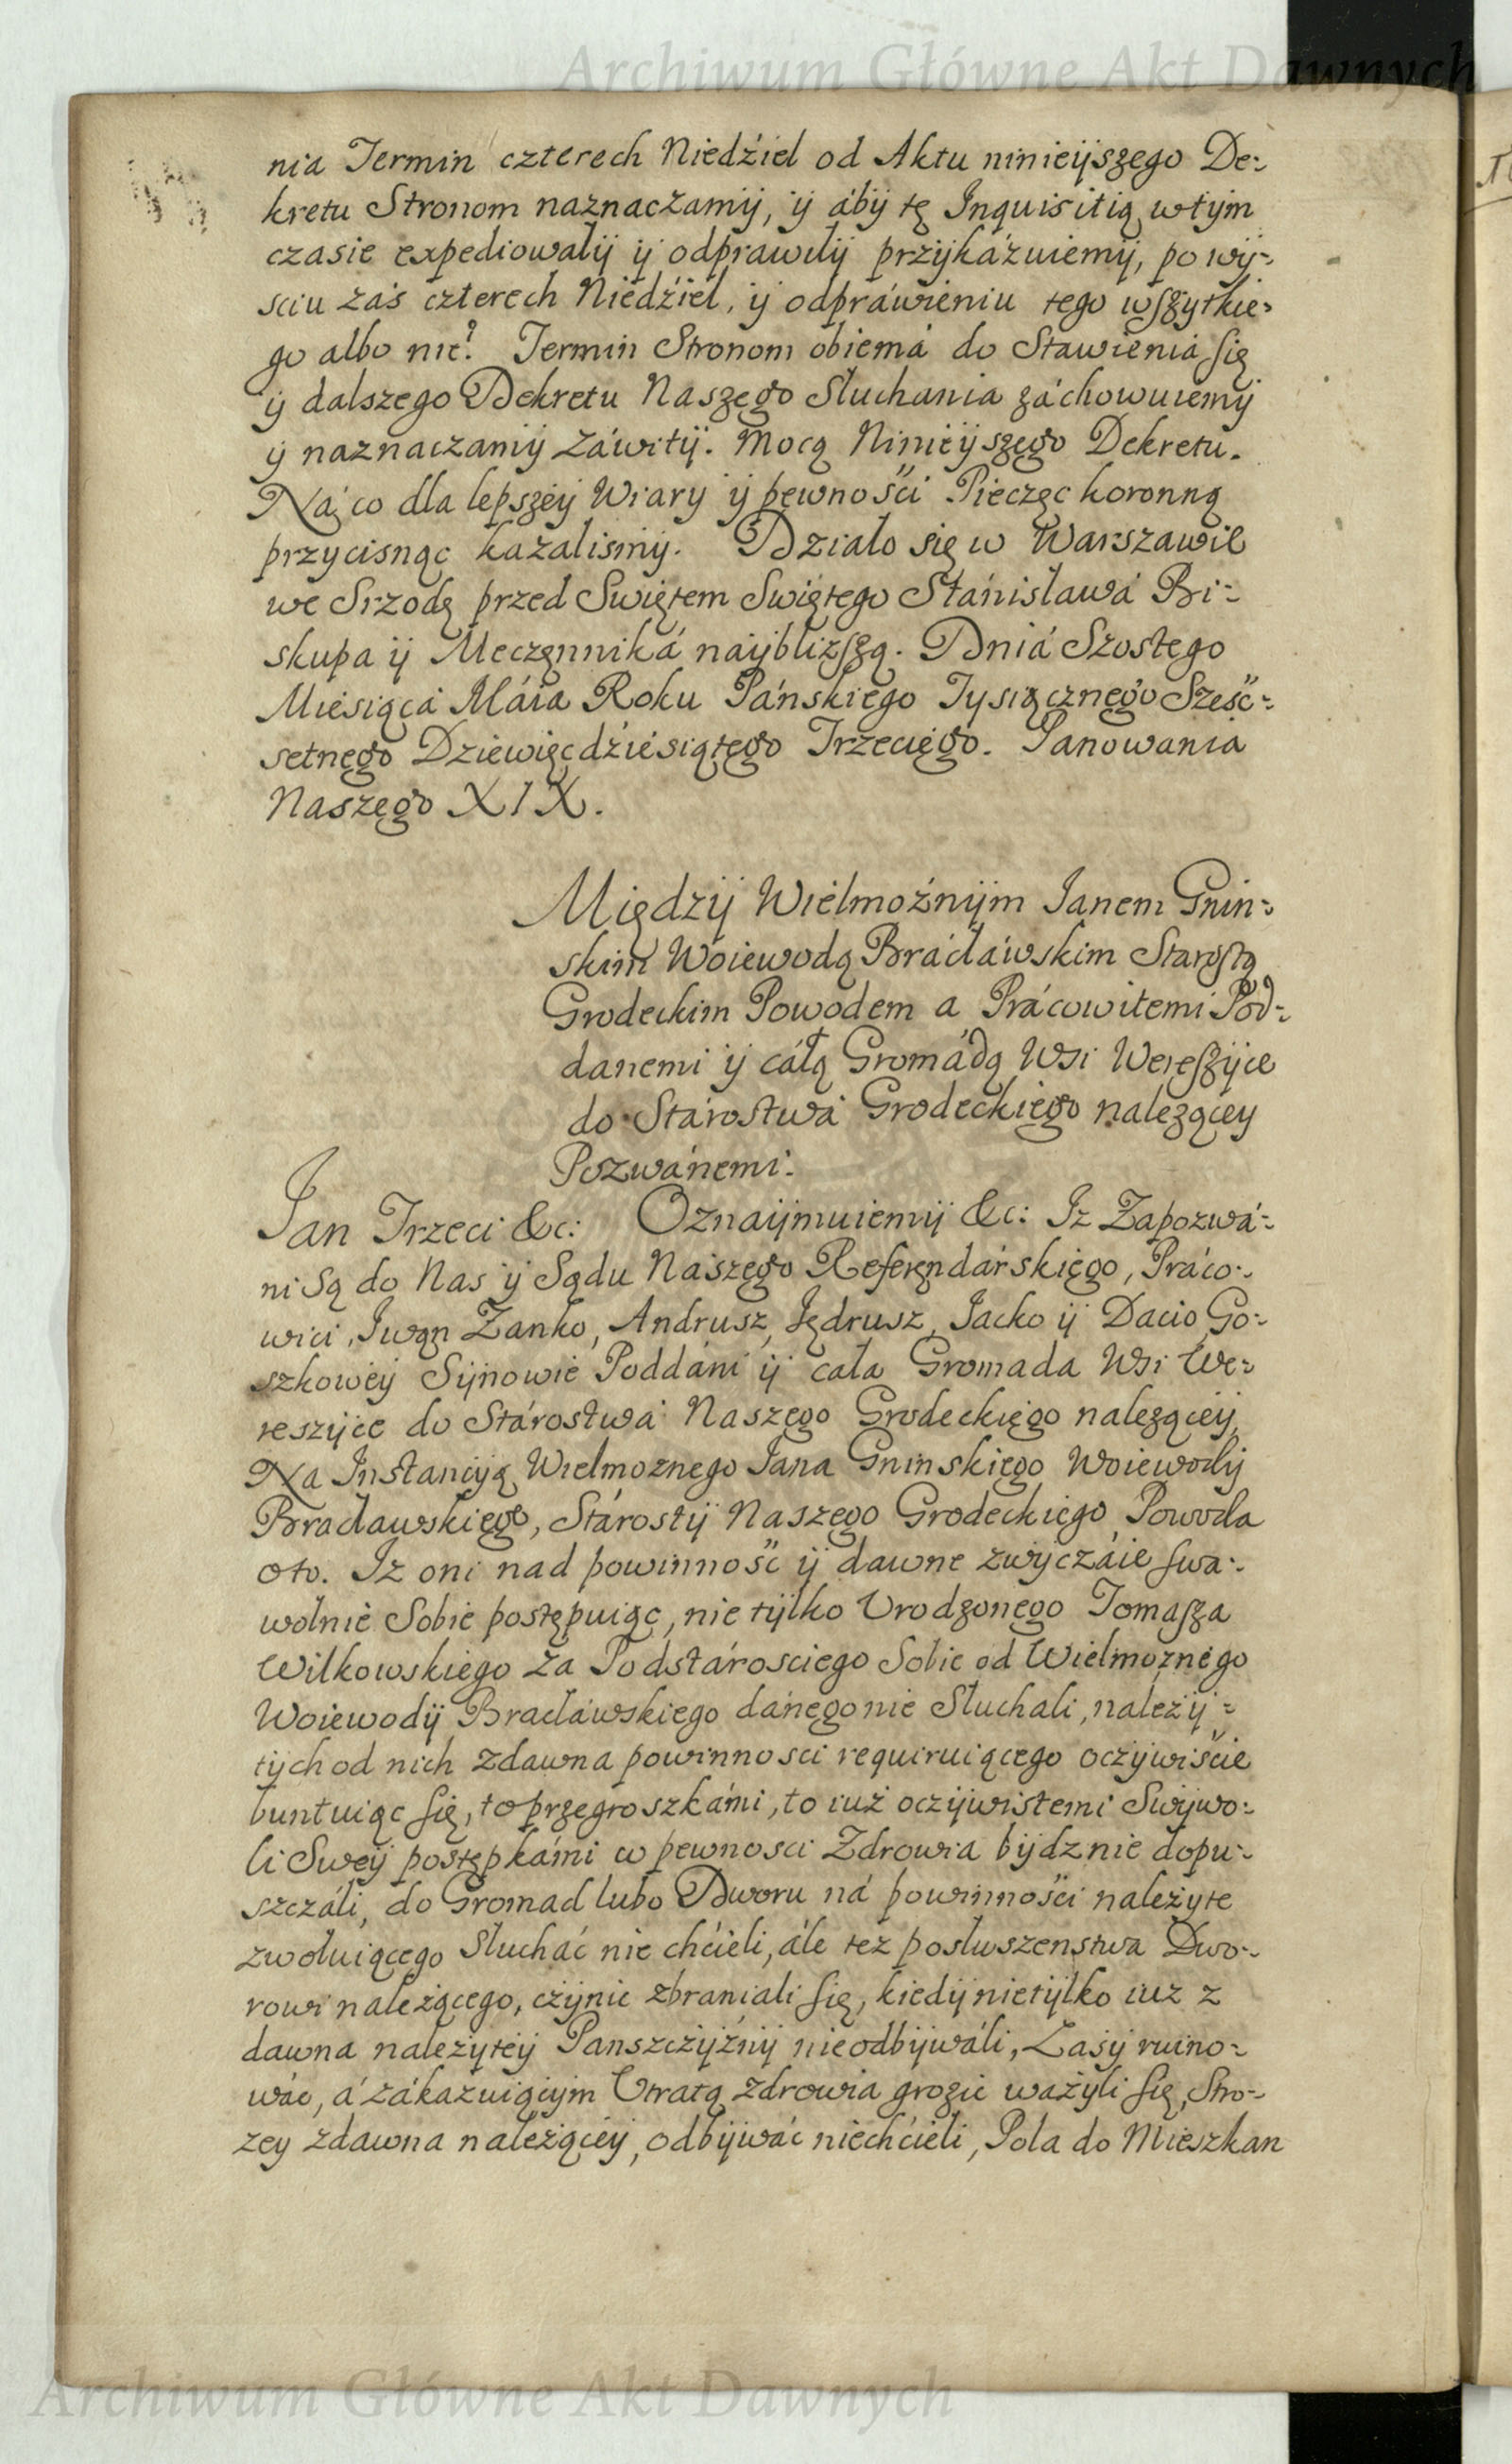 Archiwum Główne Akt Dawnych
nia Termin czterech Niedźiel od Aktu ninieÿszego De-
kretu Stronom naznaczamÿ, ÿ ábÿ tę Inquisitią wtÿm
czasie expediowalÿ ÿ odprawilÿ przÿkázuiemÿ, po wÿ-
sciu záś czterech Niedźiel, ÿ odpráwieniu tego wszytkie-
go albo nie? Termin Stronom obiemá do Stawienia się
ÿ dalszego Dekretu Naszego Słuchania záchowuiemÿ
ÿ naznaczamÿ záwitÿ. Mocą Ninieÿszego Dekretu.
Ná co dla lepszeÿ Wiary ÿ pewnośći Pieczęc koronną
przycisnąc kazalismÿ. Działo się w Warszawie
we Srzodę przed Swiętem Swiętego Stánisława Bi-
skupa ÿ Meczęnniká naÿbliższą. Dniá Szostego
Miesiąca Máia Roku Páńskiego Tysiącznego Sześć-
setnego Dziewięcdźiesiątego Trzeciego. Panowania
Naszego XIX.
Międzÿ Wielmożnÿm Janem Gnin-
skim Woiewodą Brácłáwskim Starostą
Grodeckim Powodem a Prácowitemi Pod-
danemi ÿ cáłą Gromádą Wsi Wereszÿce
do Stárostwá Grodeckiego należącey
Pozwánemi.
Jan Trzeci &c: Oznaÿmuiemÿ &c: Iz Zapozwá-
ni Są do Nas ÿ Sądu Naszego Referęndárskiego, Práco-
wici, Iwąn Zanko, Andrusz, Jędrusz, Jacko ÿ Dacio Go-
szkoweÿ Sÿnowie Poddáni ÿ cała Gromada Wsi We-
reszÿce do Stárostwá Naszego Grodeckiego należąceÿ,
Na Instancÿą Wielmoznego Jana Gninskiego Woiewodÿ
Bracławskiego, Stárostÿ Naszego Grodeckiego Powoda
oto. Iż oni nad powinność ÿ dawne zwÿczáie swa-
wolnie Sobie postępuiąc, nie tÿlko Urodzonego Tomasza
Wilkowskiego za Podstárosciego Sobie od Wielmoznego
Woiewodÿ Bracławskiego dánego nie Słuchali, należÿ-
tÿch od nich zdawna powinnosci requiruiącego oczÿwiście
buntuiąc się, to przegroszkámi, to iuż oczÿwistemi Swÿwo-
li Sweÿ postępkámi w pewnosci Zdrowia bÿdz nie dopu-
szczáli, do Gromad lubo Dworu ná powinnośći należyte
zwołuiącego Słucháć nie chćieli, ále tez posłuszenstwa Dwo-
rowi należącego, czÿnic zbraniali się, kiedÿ nietÿlko iuz z
dawna należyteÿ Panszczÿżnÿ nieodbÿwáli, Lasÿ ruino-
wác, á zákazuiącÿm Utratą zdrowia grozic ważyli się, Stro-
zey zdawna należąceÿ, odbÿwáć niechćieli, Pola do Mieszkan
Archiwum Główne Akt Dawnych